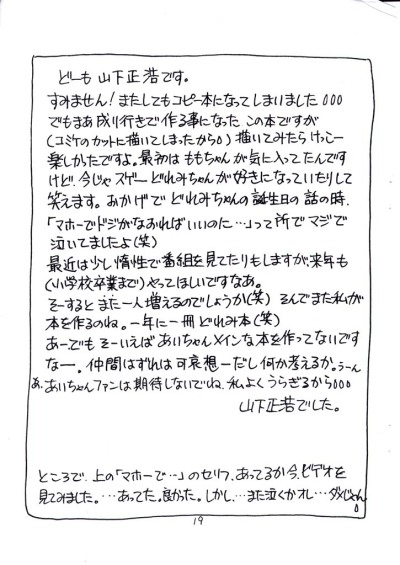 どーも 山下正浩です。
すみません!またしてもコピー本になってしまいました。。。
でもまあ成り行きで作る事になった この本ですが
(コミケのカットに描いてしまったから。)描いてみたらけっこー
楽しかったですよ。最初は ももちゃんが気に入ってたんです
けど、今じゃスゲー どれみちゃんが好きになっていたりして
笑えます。おかげで どれみちゃんの誕生日の話の時、
「マホーでドジがなおればいいのに…」って所で マジで
泣いてましたよ(笑)
最近は少し惰性で番組を見てたりもしますが、来年も
(小学校卒業まで)やってほしいですなあ。
そーすると また一人増えるのでしょうか(笑) そんでまた私が
本を作るのね。一年に一冊 どれみ本(笑)
あーでも そーいえばあいちゃんメインな本を作ってないです
なー。仲間はずれは可哀想ーだし何か考えるか。うーん
あ、あいちゃんファンは期待しないでね、私よくうらぎるから。。。
山下正浩でした。
ところで、上の「マホーで…」のセリフ、あってるか今、ビデオを
見てみました。…あってた。良かった。しかし…また泣くかオレ…ダメじゃん。
19